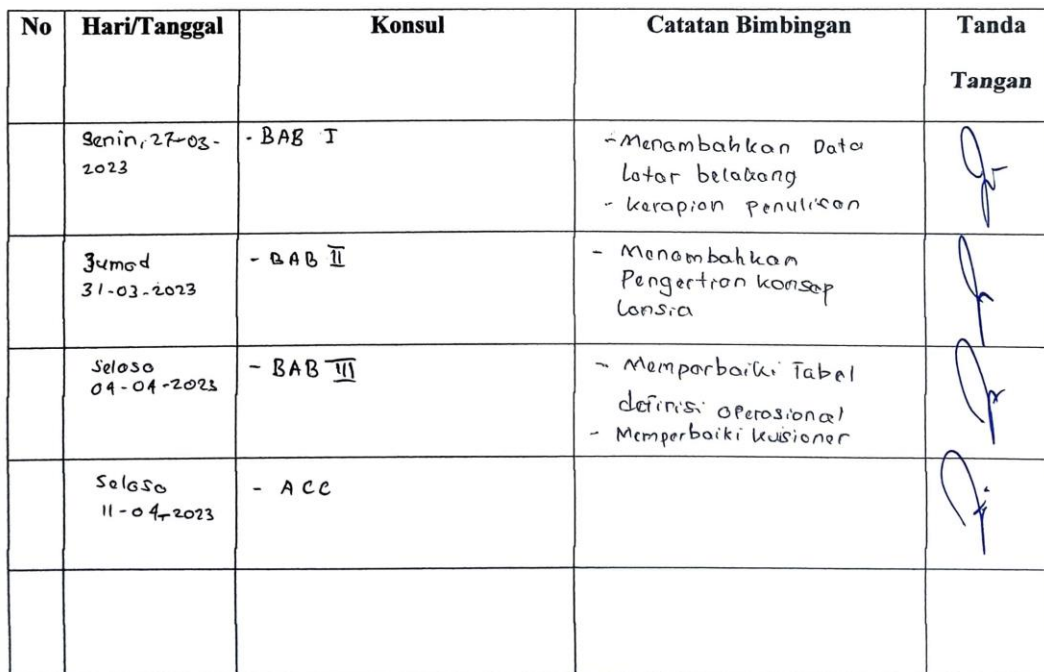 No Hari/Tanggal Konsul Catatan Bimbingan Tanda
Tangan
Senin, 27-03- - BAB I - Menambahkan Data
2023 latar belakang
- kerapian penulisan
Jumad - BAB II - Menambahkan
31-03-2023 Pengertian konsep
Lansia
Selasa - BAB III - Memperbaiki Tabel
04-04-2023 definisi operasional
- Memperbaiki kuisioner
Selasa - ACC
11-04-2023